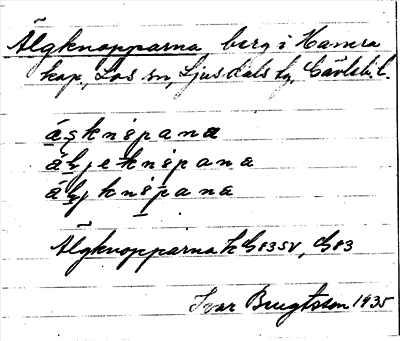 Älgknopparna, berg i Hamra
kap., Los sn, Ljusdals tg, Gävleb. l.
áşknɵpana
áļjeknɵpana
áļjknɵpana
Älgknopparna k G83SV, G83
Ivar Bengtsson 1935